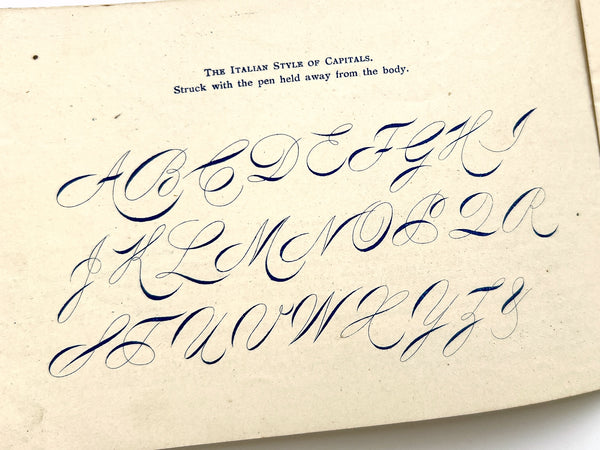 The Italian Style of Capitals.
Struck with the pen held away from the body.
A B C D E F G H I
J K L M N O P Q R
S T U V W X Y Z &